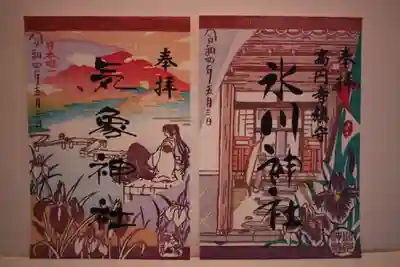 奉拝
日本唯一
気象神社
令和四年五月三日
奉拝
高円寺鎮守
氷川神社
令和四年五月三日